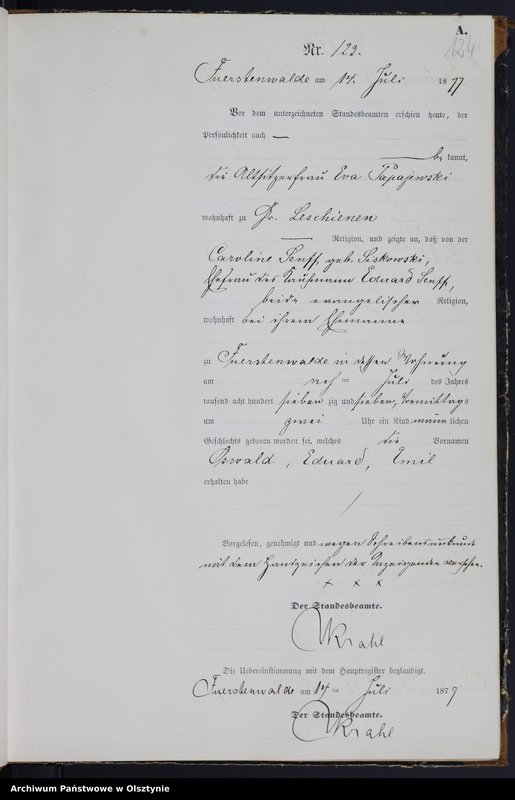 A.
124
Nr. 123.
Fuerstenwalde am 14. Juli 1877
Vor dem unterzeichneten Standesbeamten erschien heute, der
Persönlichkeit nach —
— be kannt,
die Altsitzerfrau Eva Papajewski
wohnhaft zu Gr. Leschienen
— Religion, und zeigte an, daß von der
Caroline Senff, geb. Siskowski,
Ehefrau des Kaufmann Eduard Senff,
beide evangelischer Religion,
wohnhaft bei ihrem Ehemanne
zu Fuerstenwalde in dessen Wohnung
am ten Juli des Jahres
tausend acht hundert sieben zig und sieben, Vormittags
um zwei Uhr ein Kind männ lichen
Geschlechts geboren worden sei, welches die Vornamen
Oswald, Eduard, Emil
erhalten habe
Vorgelesen, genehmigt und wegen Schreibensunkunde
mit dem Handzeichen der Anzeigenden versehen.
+ x x
Der Standesbeamte.
Krahl
Die Uebereinstimmung mit dem Hauptregister beglaubigt.
Fuerstenwalde am 14 ten Juli 1877
Der Standesbeamte.
Krahl
Archiwum Państwowe w Olsztynie